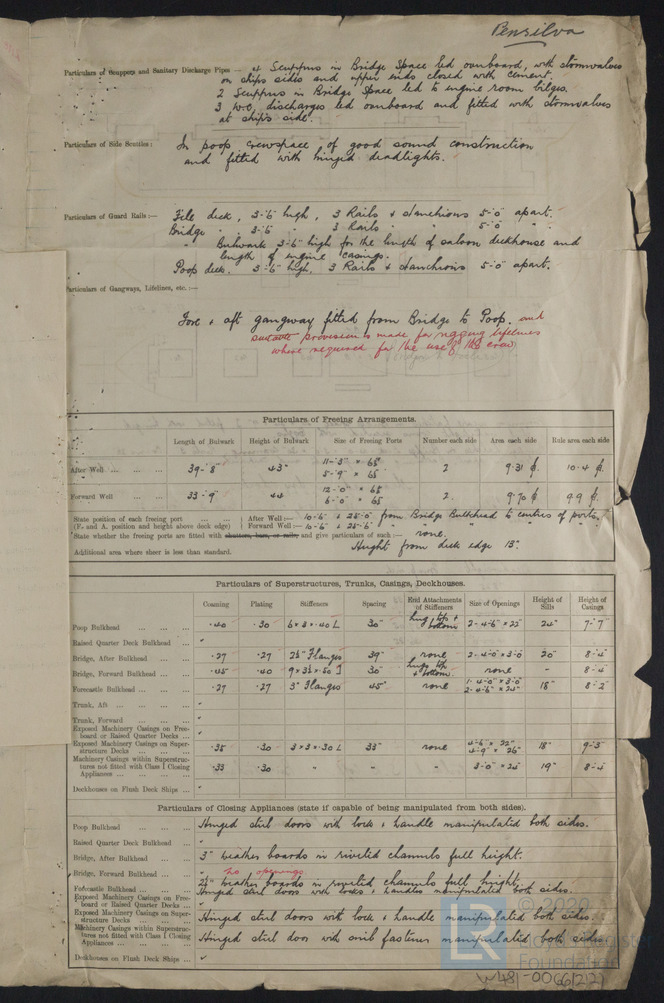 Pensilva
Particulars of Scuppers and Sanitary Discharge Pipes — 4 Scuppers in Bridge Space led overboard, with stormvalves
on ships sides and upper ends closed with cement.
2 Scuppers in Bridge Space led to engine room bilges.
3 W.C. discharges led overboard and fitted with stormvalves
at ship's side.
Particulars of Side Scuttles:— In poop crewspace of good sound construction
and fitted with hinged deadlights.
Particulars of Guard Rails:— Fcle deck, 3'-6" high, 3 Rails & stanchions 5'-0" apart.
Bridge " 3'-6" " 3 Rails " " 5'-0" "
" Bulwark 3'-6" high for the length of saloon deckhouse and
length of engine casings.
Poop deck. 3'-6" high, 3 Rails & stanchions 5'-0" apart.
Particulars of Gangways, Lifelines, etc.:—
Fore & aft gangway fitted from Bridge to Poop. and
suitable provision is made for rigging lifelines
where required for the use of the crew
Particulars of Freeing Arrangements.
Length of Bulwark Height of Bulwark Size of Freeing Ports Number each side Area each side Rule area each side
After Well ... 39'-8" 43" 11'-3" × 65" 5'-9" × 65" 2 9.31 10.4
Forward Well 33'-9" 44 12'-0" × 65" 6'-0" × 65" 2. 9.70 9.9
State position of each freeing port ... (F. and A. position and height above deck edge) After Well:— 10'-6" & 25'-0" from Bridge Bulkhead to centres of ports.
Forward Well:— 10'-6" & 25'-6" " " " " "
State whether the freeing ports are fitted with shutters, bars, or rails, and give particulars of such:— none.
Additional area where sheer is less than standard. Height from deck edge 13".
Particulars of Superstructures, Trunks, Casings, Deckhouses.
Coaming Plating Stiffeners Spacing End Attachments of Stiffeners Size of Openings Height of Sills Height of Casings
Poop Bulkhead .40 .30 6 × 3 × .40 L 30" lugs top & bottom 2 - 4'-6" × 22" 24" 7'-7"
Raised Quarter Deck Bulkhead "
Bridge, After Bulkhead .27 .27 2½" Flanges 39" none 2 - 4'-0" × 3'-0 20" 8'-4
Bridge, Forward Bulkhead .45 .40 9 × 3½ × .50 30" lugs top & bottom. none - 8'-4
Forecastle Bulkhead .27 .27 3" Flanges 45" none 1 - 4'-0" × 3'-0 2 - 4'-6" × 24" 18" 8'-2
Trunk, Aft "
Trunk, Forward "
Exposed Machinery Casings on Freeboard or Raised Quarter Decks "
Exposed Machinery Casings on Superstructure Decks .35 .30 3 × 3 × .30 L 33" none 4'-6" × 22" 4'-9" × 26" 18" 9'-3"
Machinery Casings within Superstructures not fitted with Class I Closing Appliances .33 .30 " " " 3'-0" × 24" 19" 8'-4
Deckhouses on Flush Deck Ships "
Particulars of Closing Appliances (state if capable of being manipulated from both sides).
Poop Bulkhead Hinged steel doors with lock & handle manipulated both sides.
Raised Quarter Deck Bulkhead "
Bridge, After Bulkhead 3" weather boards in riveted channels full height.
Bridge, Forward Bulkhead no openings
Forecastle Bulkhead 2½" weather boards in riveted channels full height,
Hinged steel doors with locks & handles manipulated both sides.
Exposed Machinery Casings on Freeboard or Raised Quarter Decks "
Exposed Machinery Casings on Superstructure Decks Hinged steel doors with lock & handle manipulated both sides.
Machinery Casings within Superstructures not fitted with Class I Closing Appliances Hinged steel door with fastener manipulated both sides
Deckhouses on Flush Deck Ships "
© 2020
Lloyd's Register
Foundation
LR
W481-0066(2/2)